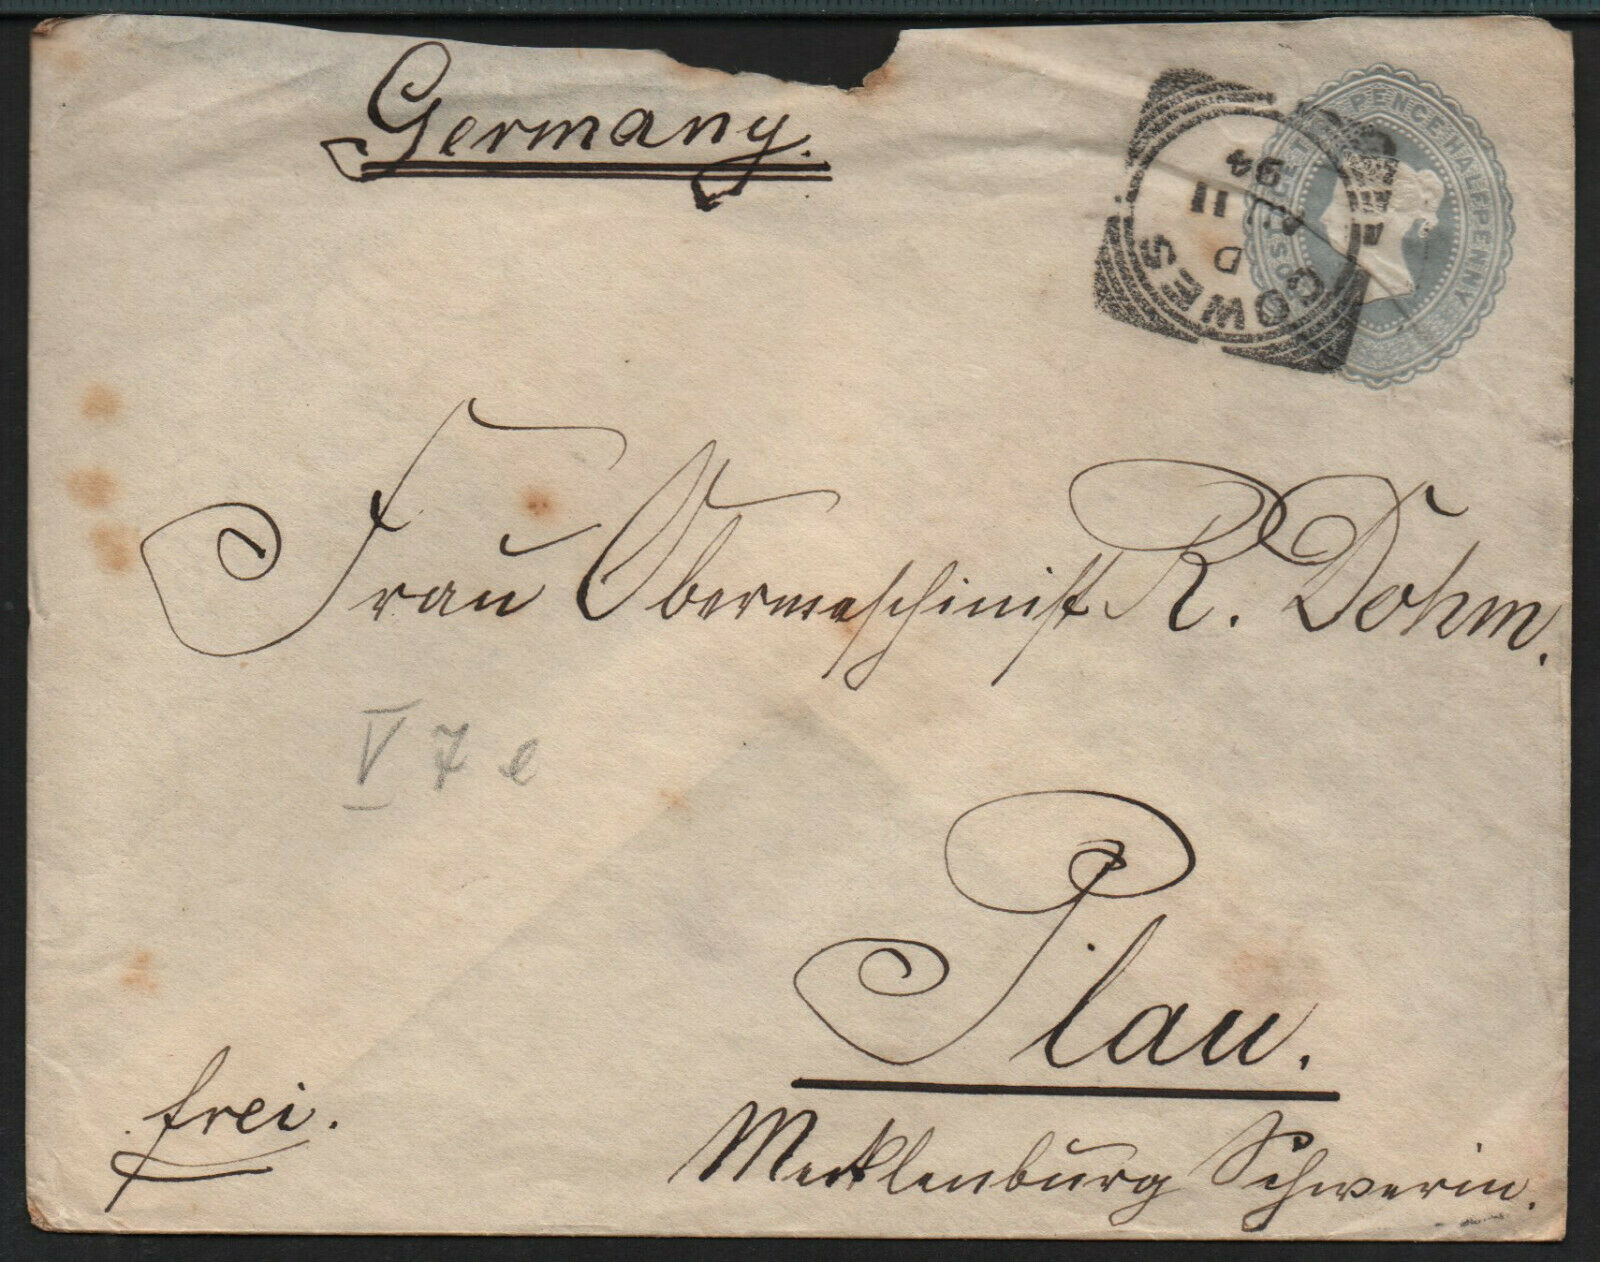 Germany.
PENCE HALFPENNY
COWES
D
11
94
Frau Obermaschinist R. Dohm.
V 7 e
Plau.
frei.
Mecklenburg Schwerin.